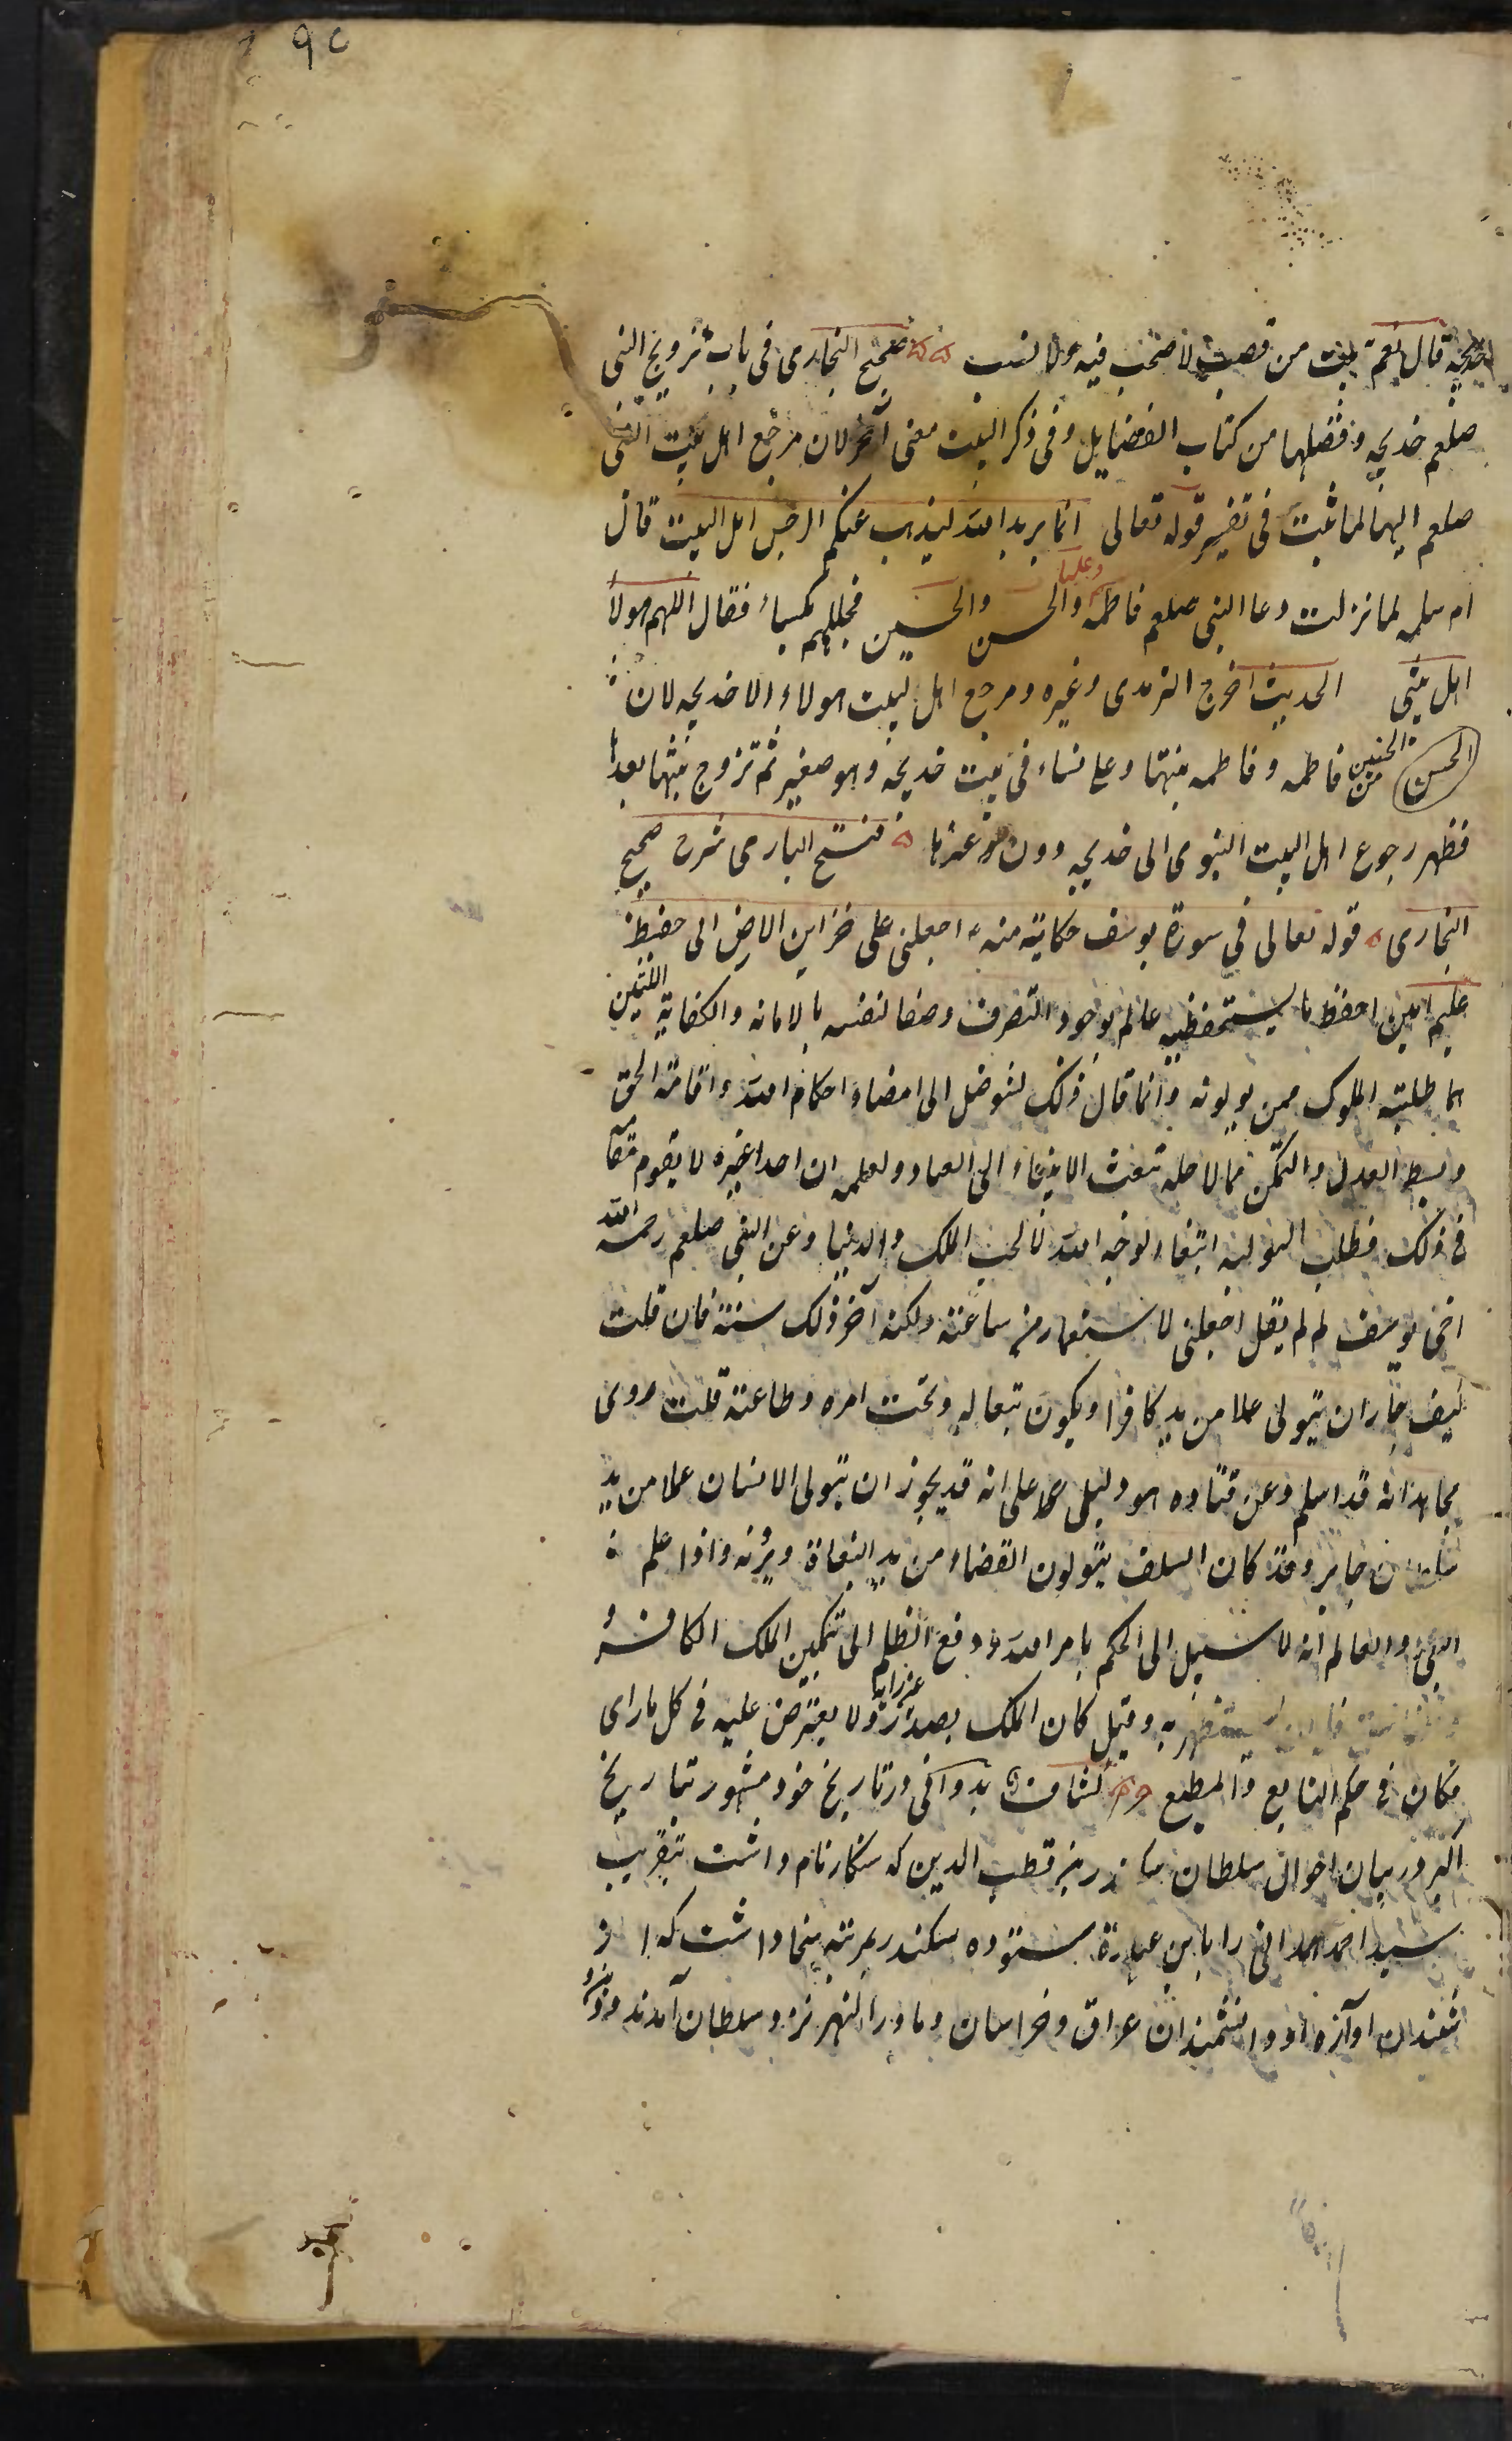 ۹۵
خدیجه قال نعم ببیت من قصب لا صخب فیه ولا نصب صحیح البخاری فی باب تزویج النبی
صلعم خدیجه و فضلها من کتاب الفضایل وفی ذکر البیت معنی آخر لان مرجع اهل بیت النبی
صلعم الیها لما ثبت فی تفسیر قوله تعالی انما یرید الله لیذهب عنکم الرجس اهل البیت قال
ام سلمه لما نزلت دعا النبی صلعم فاطمه وعلیا والحسن والحسین فجللهم بکساء فقال اللهم هولاء
اهل بیتی الحدیث اخرج الترمذی وغیره ومرجع اهل البیت هولاء الا خدیجه لان
الحسن الحسین من فاطمه وفاطمه بنتها وعلی نشاء فی بیت خدیجه وهو صغیر ثم تزوج بنتها بعدها
فظهر رجوع اهل البیت النبوی الی خدیجه دون غیرها فتح الباری شرح صحیح
البخاری قوله تعالی فی سورة یوسف حکایة منه اجعلنی علی خزاین الارض انی حفیظ
علیم امین احفظ ما یستحفظنیه عالم بوجوه التصرف وصفا لنفسه بالامانه والکفایة اللتین
هما طلبة الملوک ممن یولونه وانما قال ذلک لیتوصل الی امضاء احکام الله واقامة الحق
وبسط العدل والتمکن مما لاجله تبعث الانبیاء الی العباد ولعلمه ان احدا غیره لا یقوم مقامه
فی ذلک فطلب التولیه ابتغاء لوجه الله لا لحب الملک والدنیا وعن النبی صلعم رحم الله
اخی یوسف لم لم یقل اجعلنی لاستعمله من ساعته ولکنه آخر ذلک سنة فان قلت
کیف جاز ان یتولی عملا من ید کافر ا ویکون تبعا له وتحت امره وطاعته قلت روی
مجاهد انه قد اسلم وعن قتاده هو دلیل علی انه قد یجوز ان یتولی الانسان عملا من ید
سلطان جایر وقد کان السلف یتولون القضاء من ید البغاة ویرونه واذا علم
النبی او العالم انه لا سبیل الی الحکم بامر الله ودفع الظلم الی تمکین الملک الکافر
یستظهر به وقیل کان الملک یصدر عن رایه ولا یعترض علیه فی کل ما رای
فکان فی حکم التابع والمطیع کشاف بدوانی در تاریخ خود مشهور بتاریخ
اکبر در بیان احوال سلطان سکندر بن قطب الدین که سنکار نام داشت بتقریب
سید احمد همدانی را باین عبارة ستوده سکندر مرتبه سخا داشت که از
شنیدن آوازه او دانشمندان عراق وخراسان وماوراالنهر نزد سلطان آمدند